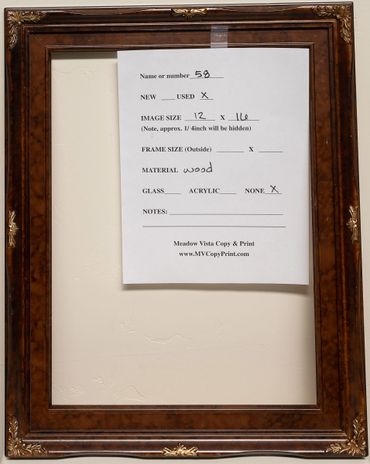 Name or number 58
NEW ___ USED X
IMAGE SIZE 12 X 16
(Note, approx. 1/ 4inch will be hidden)
FRAME SIZE (Outside) ______ X ______
MATERIAL wood
GLASS____ ACRYLIC____ NONE X
NOTES: ______________________
Meadow Vista Copy & Print
www.MVCopyPrint.com